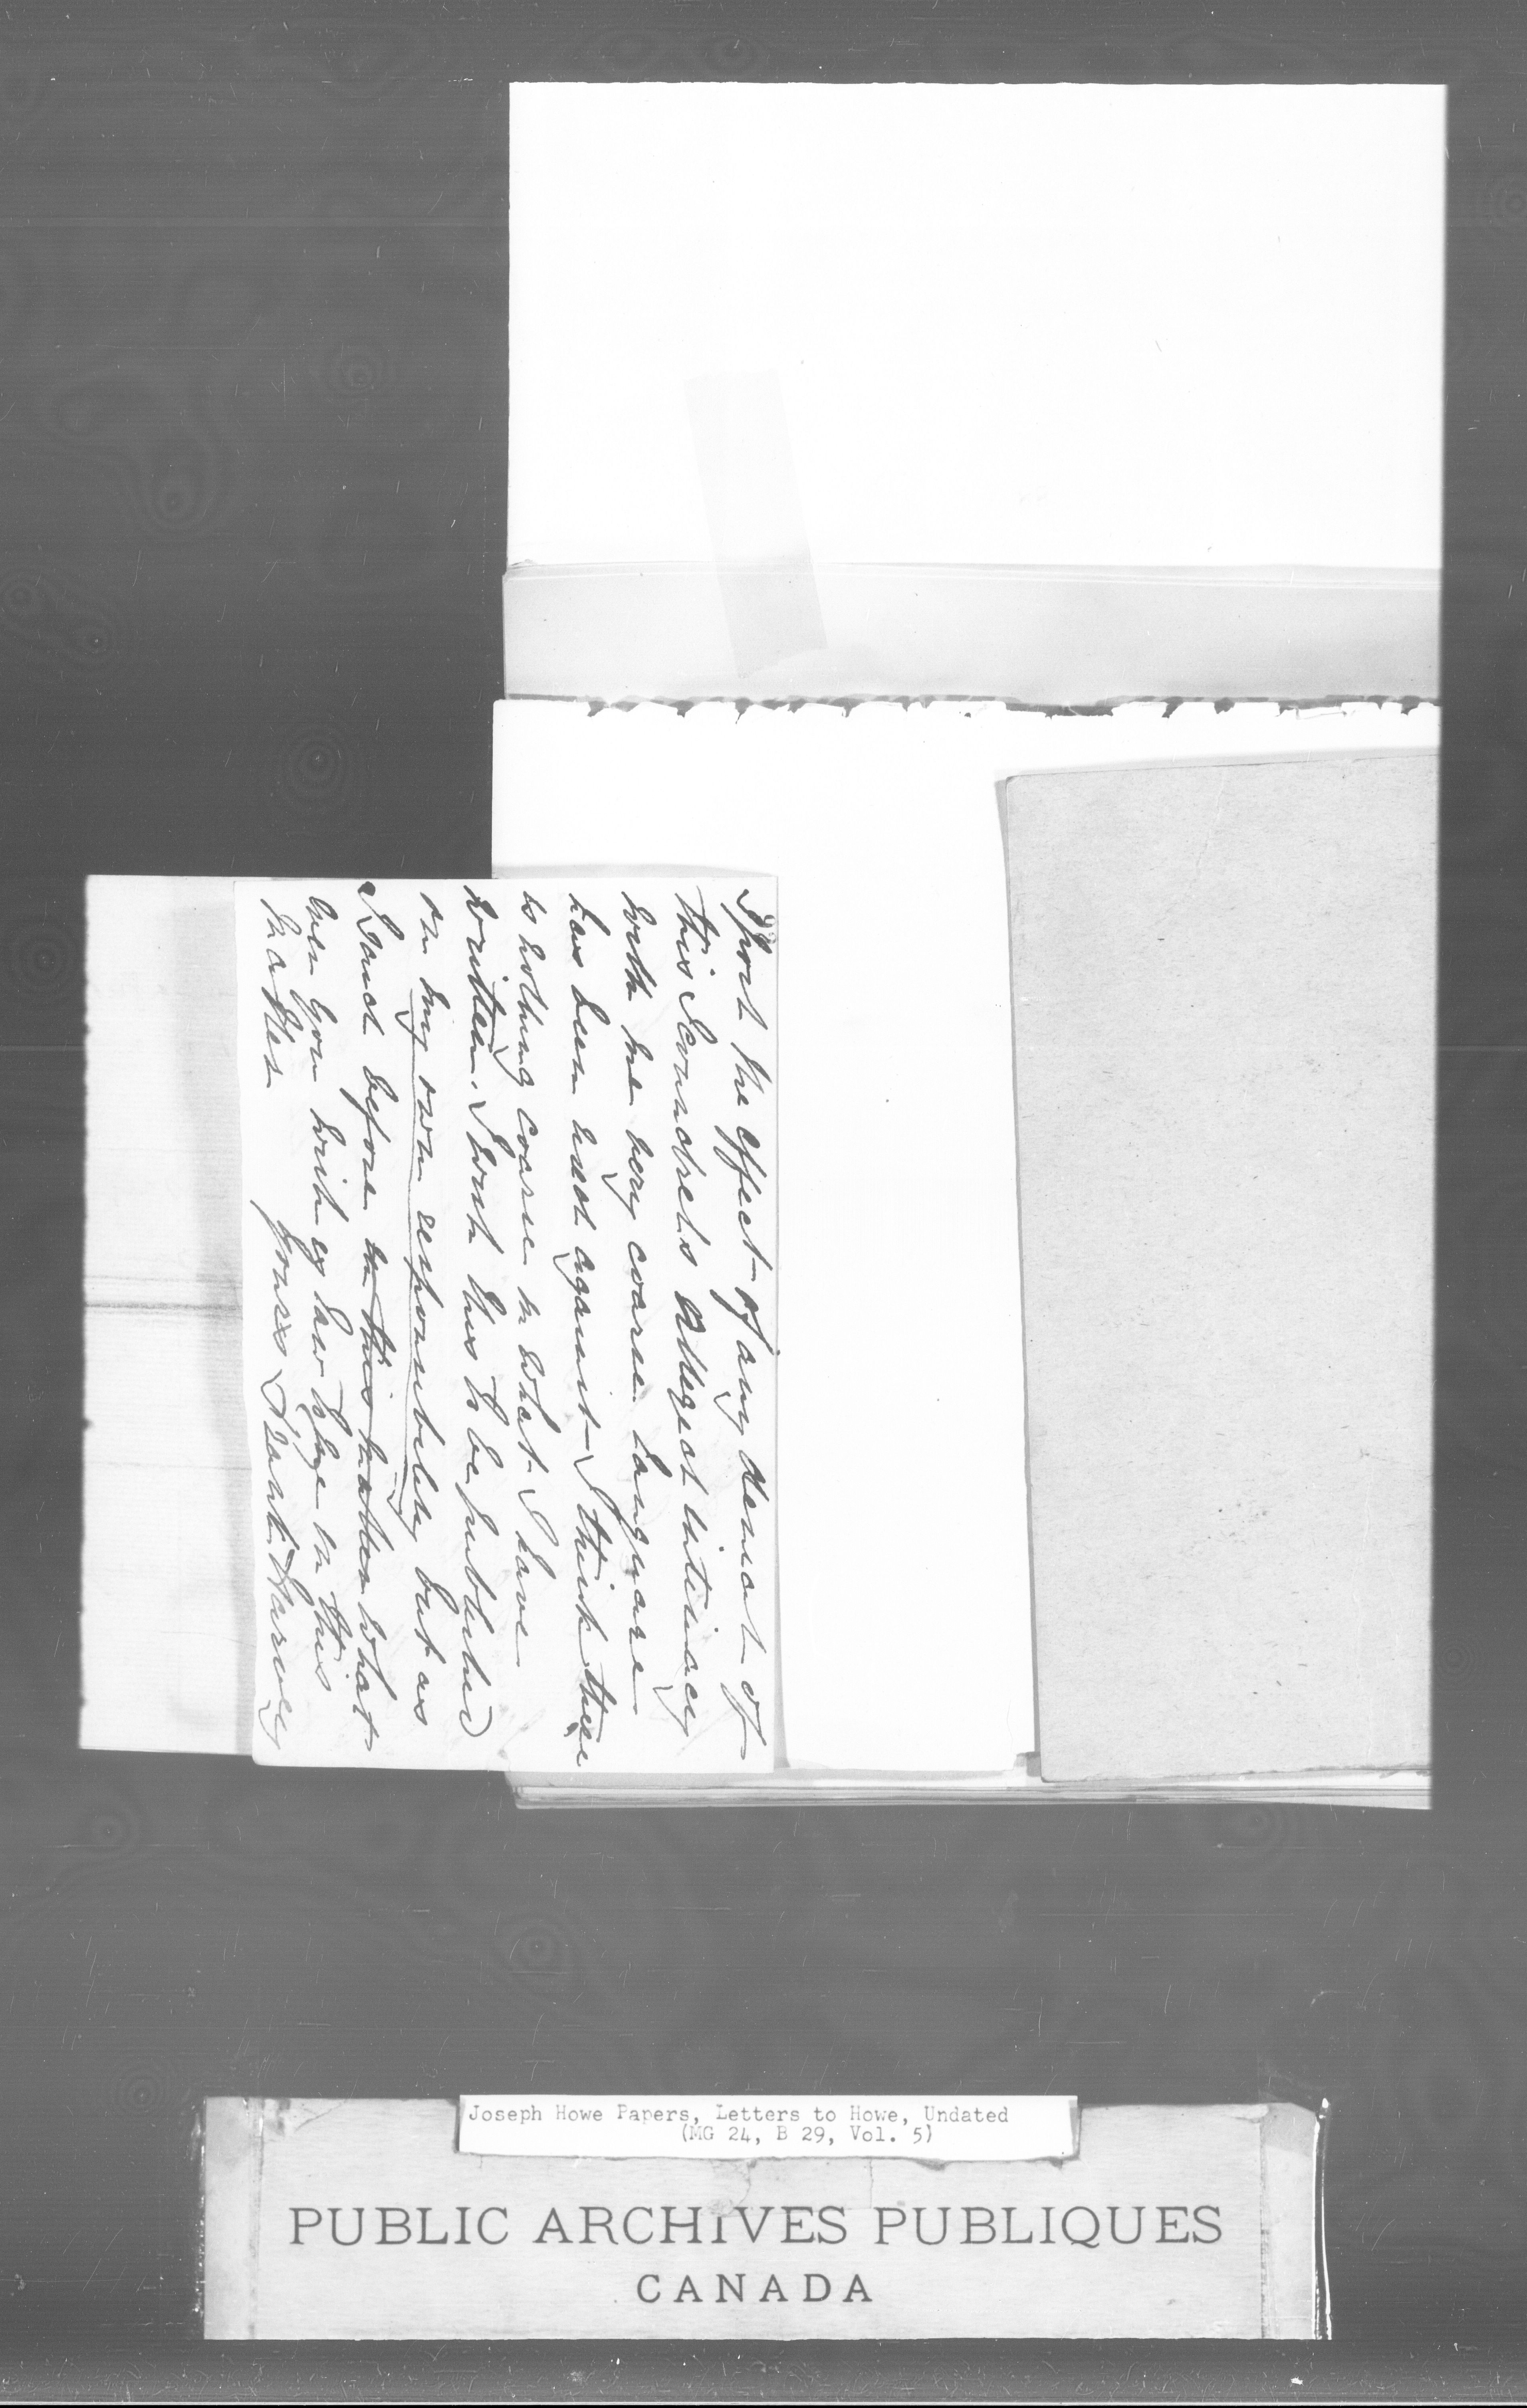 Spoil the effect of any denial of
this Scoundrel's alleged intimacy
with me very coarse language
has been used against I think there
is nothing coarse in what I have
written. I wish this to be published
on my own responsibility but as
I said before in this matter what
ever you wish
matter
yours Harvey
Joseph Howe Papers, Letters to Howe, Undated
(MG 24, B 29, Vol. 5)
PUBLIC ARCHIVES PUBLIQUES
CANADA